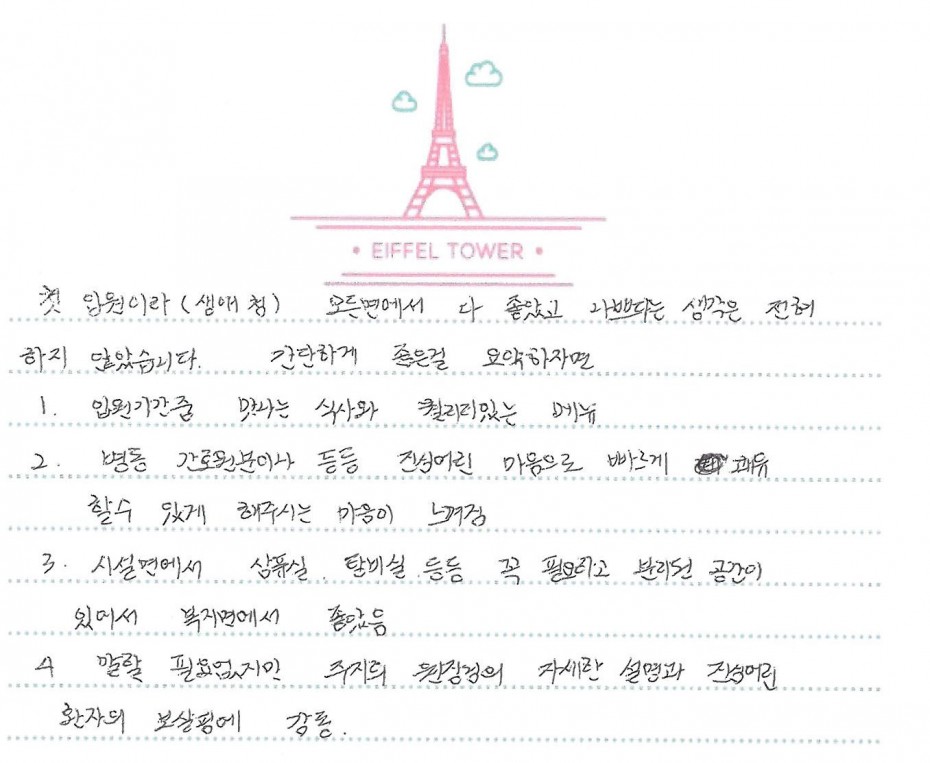 • EIFFEL TOWER •
첫 입원이라 (생애 첨) 모든면에서 다 좋았고 나쁘다는 생각은 전혀
하지 않았습니다. 간단하게 좋은걸 요약하자면
1. 입원기간중 맛나는 식사와 퀄리티있는 메뉴
2. 병동 간호원분이나 등등 진심어린 마음으로 빠르게 쾌유
할수 있게 해주시는 마음이 느껴짐
3. 시설면에서 샴푸실, 탕비실 등등 꼭 필요하고 분리된 공간이
있어서 복지면에서 좋았음
4 말할 필요없지만 주치의 원장님의 자세한 설명과 진심어린
환자의 보살핌에 감동.